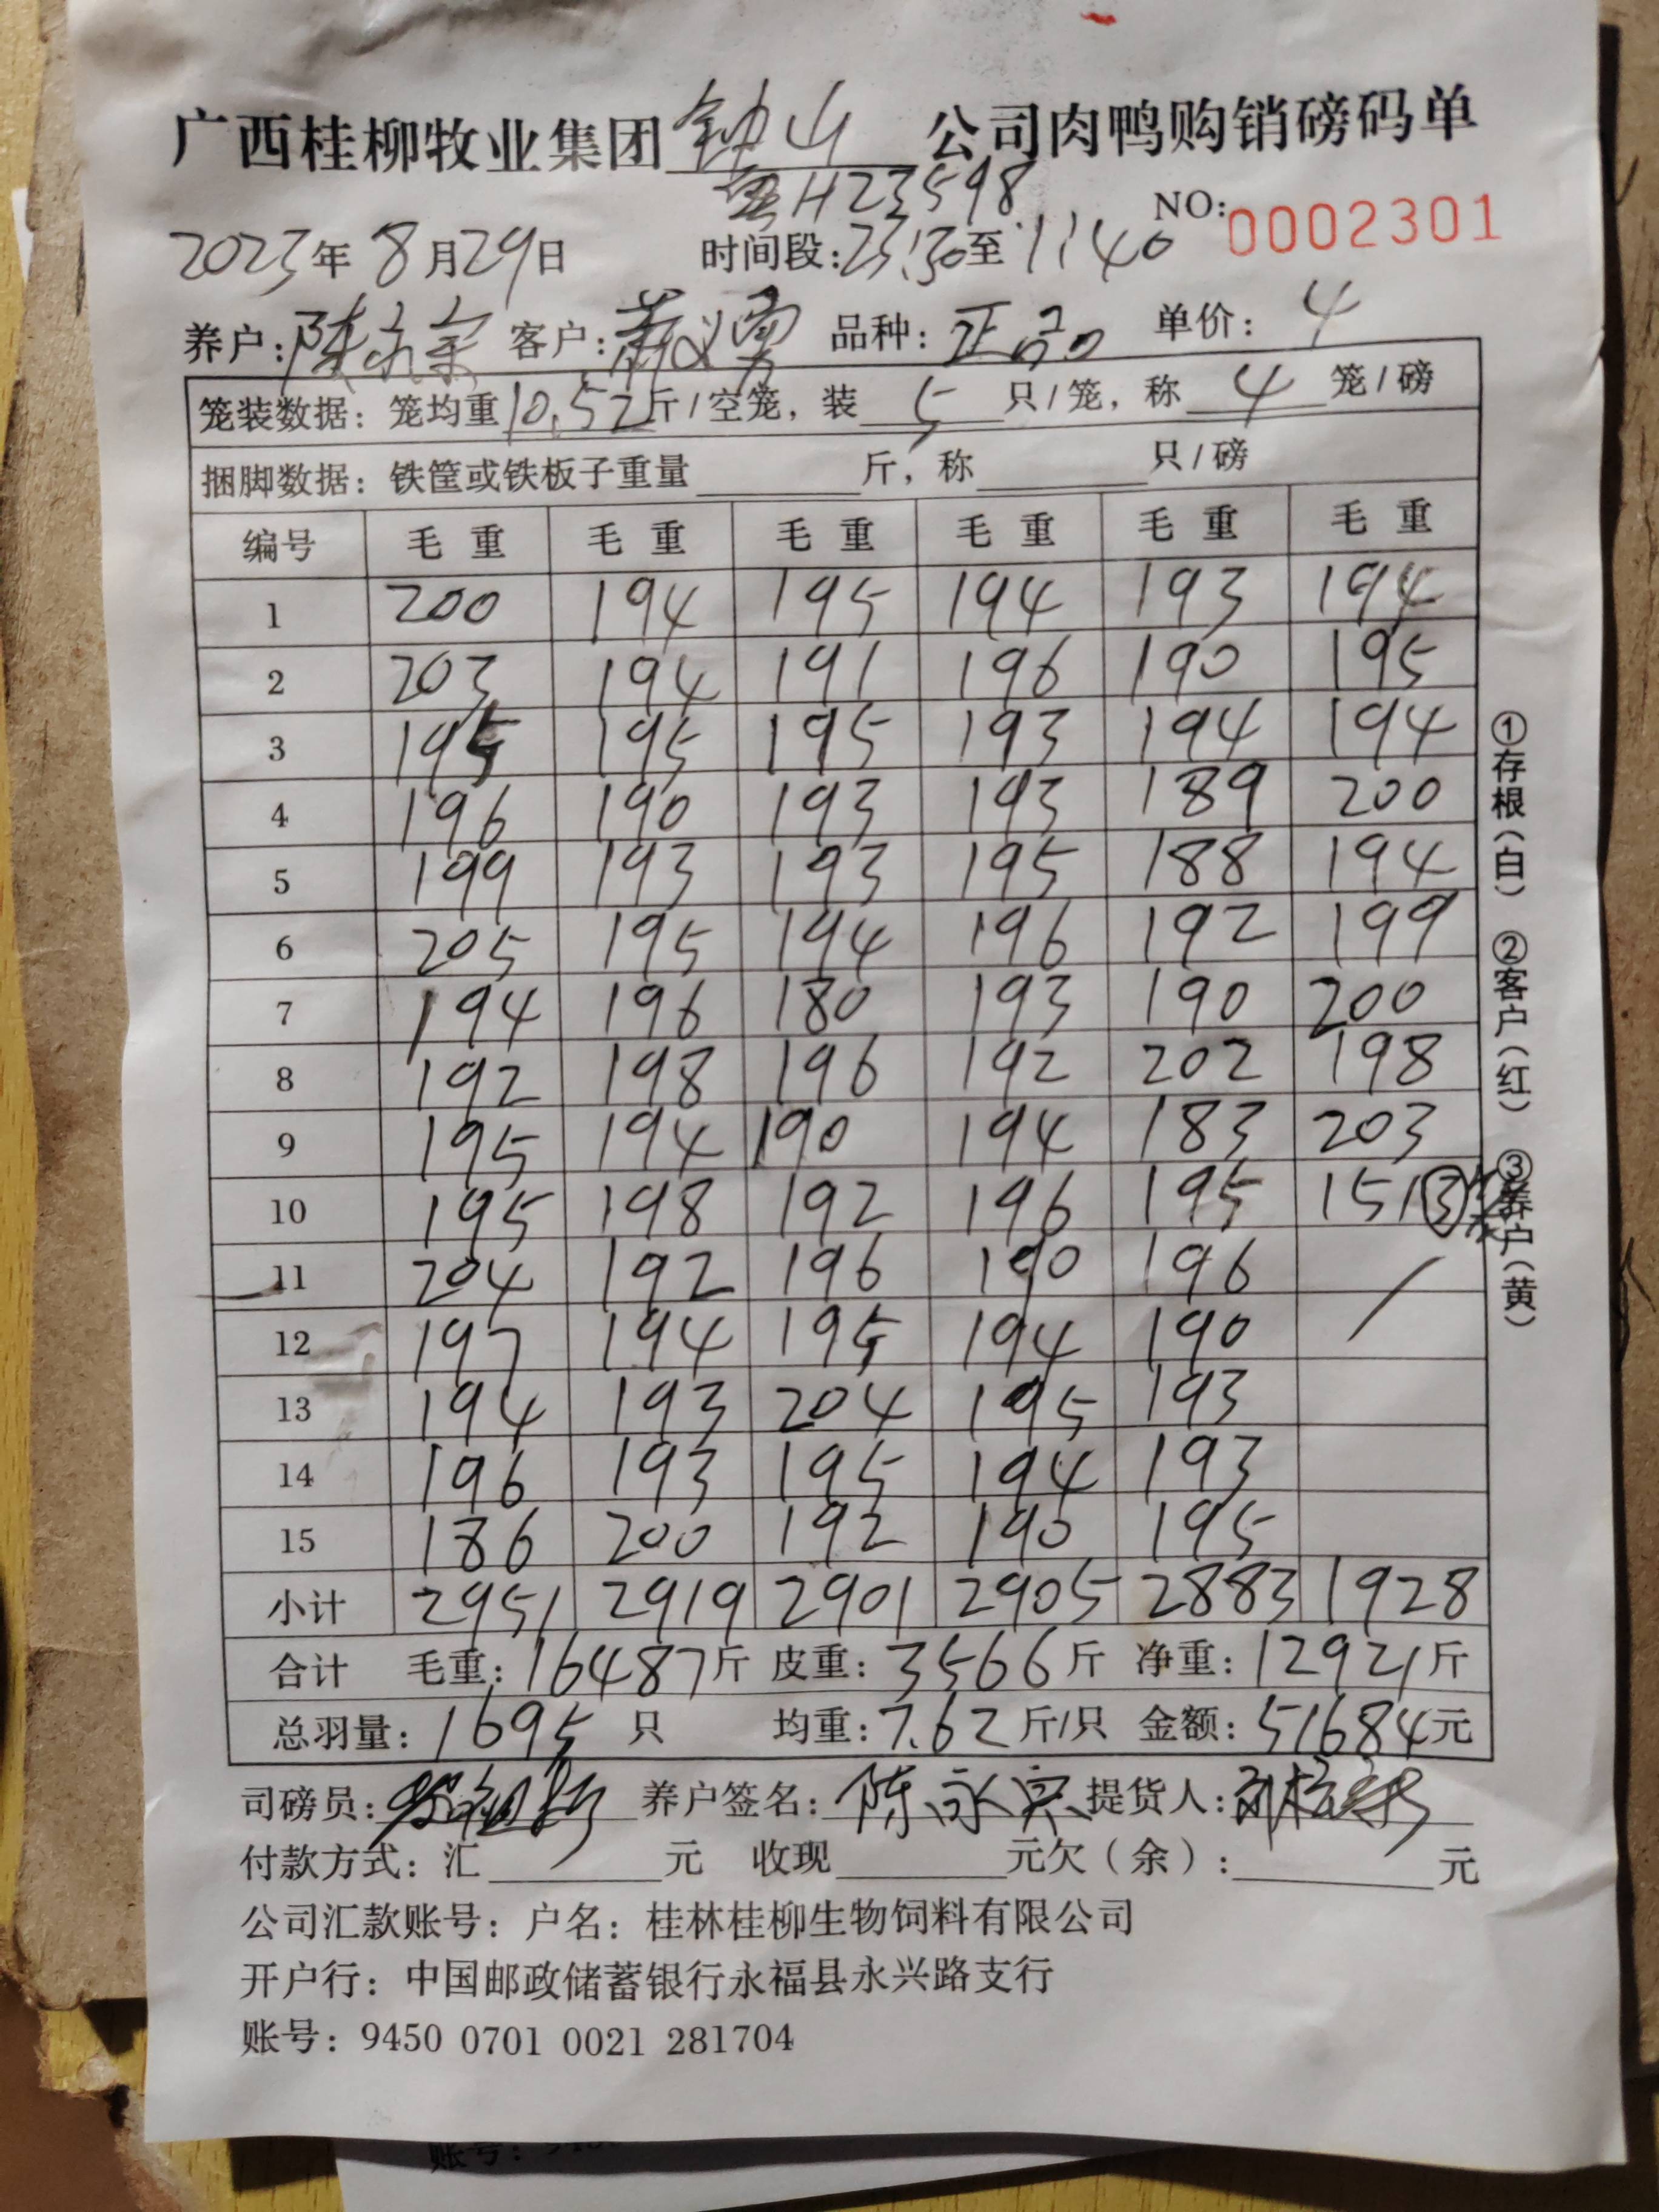 广西桂柳牧业集团钟山公司肉鸭购销磅码单
粤H23598
NO:0002301
2023年8月29日 时间段:23:30至1:40
养户:陈永 客户:萧义勇 品种:正品 单价:4
笼装数据:笼均重10.52斤/空笼,装5只/笼,称4笼/磅
捆脚数据:铁筐或铁板子重量 斤,称 只/磅
编号 毛重 毛重 毛重 毛重 毛重 毛重
1 200 194 195 194 193 194
2 203 194 191 196 190 195
3 195 195 195 193 194 194
4 196 190 193 193 189 200
5 199 193 193 195 188 194
6 205 195 194 196 192 199
7 194 196 180 193 190 200
8 192 198 196 192 202 198
9 195 194 190 194 183 203
10 195 198 192 196 195 151③
11 204 192 196 190 196
12 197 194 195 194 190
13 194 193 204 195 193
14 196 193 195 194 193
15 186 200 192 190 195
小计 2951 2919 2901 2905 2883 1928
合计 毛重:16487斤 皮重:3566斤 净重:12921斤
总羽量:1695只 均重:7.62斤/只 金额:51684元
司磅员: 养户签名:陈永 提货人:
付款方式:汇 元 收现 元欠(余): 元
公司汇款账号:户名:桂林桂柳生物饲料有限公司
开户行:中国邮政储蓄银行永福县永兴路支行
账号:9450 0701 0021 281704
①存根(白) ②客户(红) ③养户(黄)
账号: